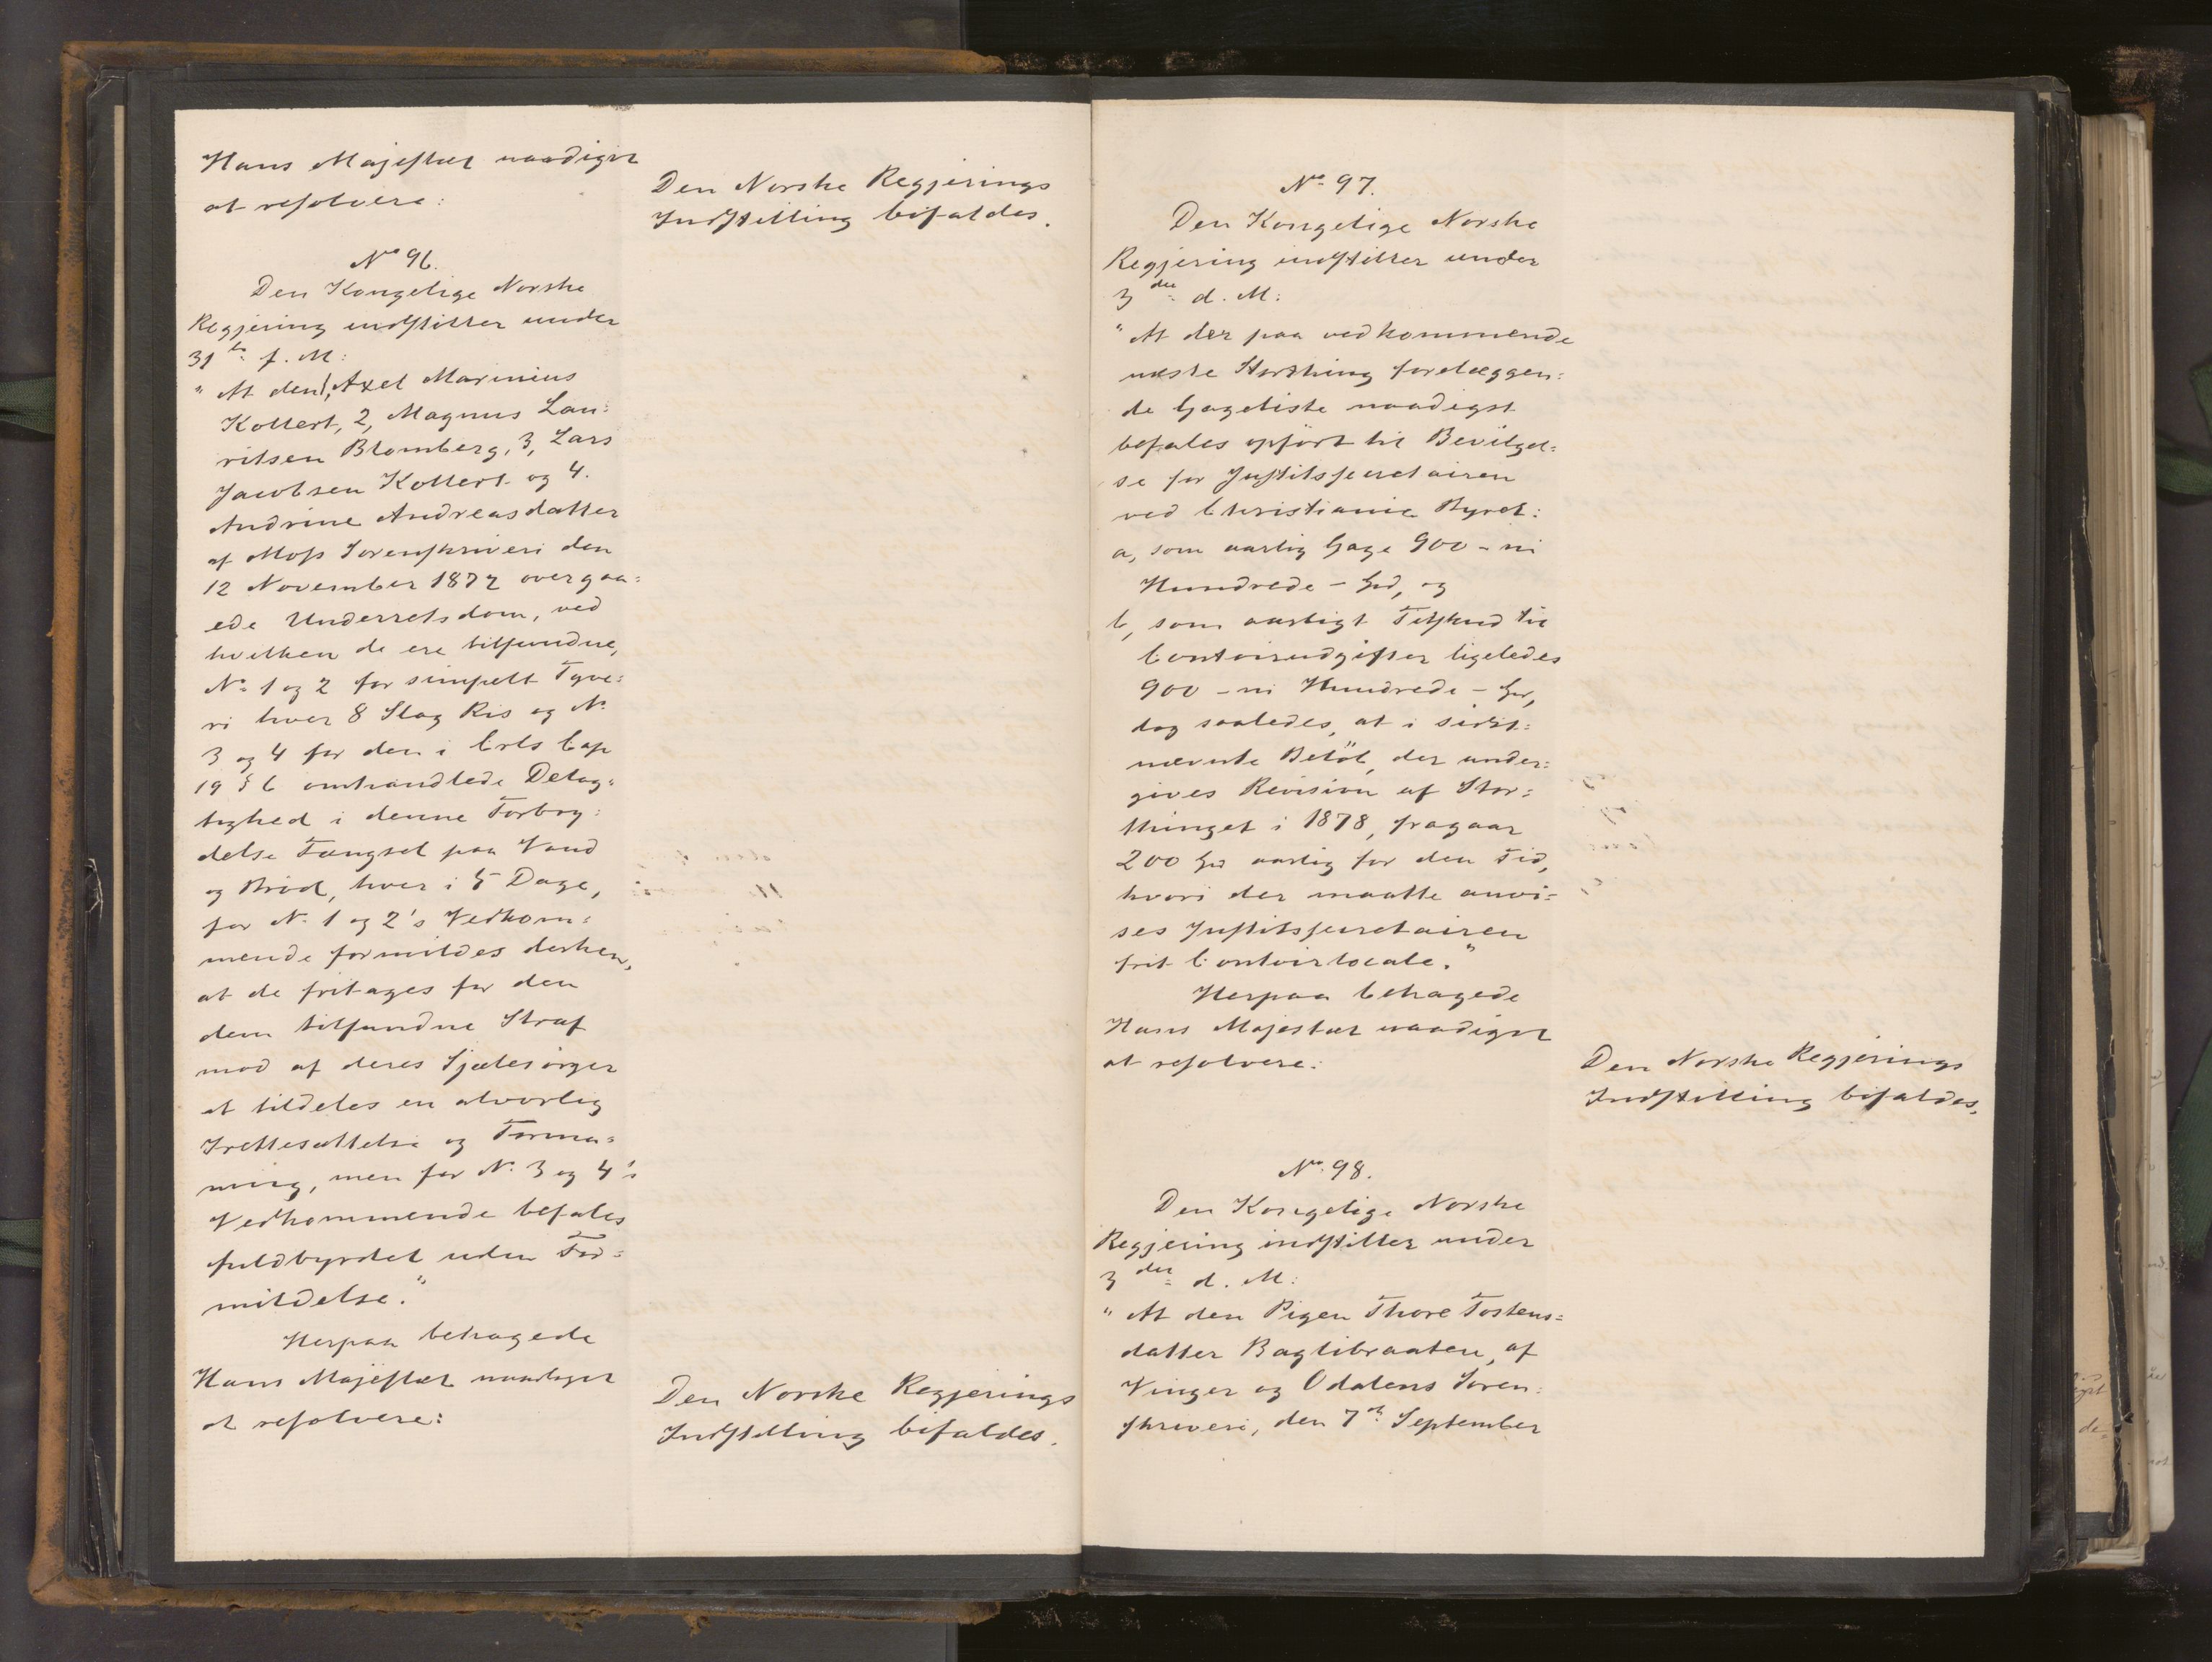 Hans Majestæt naadigst
at resolvere:
Den Norske Regjerings
Indstilling bifaldes.
No 96.
Den Kongelige Norske
Regjering indstiller under
31te f. M:
"At den 1, Axel Marinius
Kollert, 2, Magnus Lau=
ritsen Blomberg, 3, Lars
Jacobsen Kollert og 4.
Andrine Andreasdatter
af Moss Sorenskriveri den
12 November 1872 overgaa=
ede Underretsdom, ved
hvilken de ere tilfundne,
No 1 og 2 for simpelt Tyve=
ri hver 8 Slag Ris og No
3 og 4 for den i Crls Cap
19 § 6 omhandlede Delag=
tighed i denne Forbry=
delse Fængsel paa Vand
og Bröd, hver i 5 Dage,
for No 1 og 2's Vedkom=
mende formildes derhen,
at de fritages for den
dem tilfundne Straf
mod af deres Sjælesörger
at tildeles en alvorlig
Irettesættelse og Forma=
ning, men for No 3 og 4's
Vedkommende befales
fuldbyrdet uden For=
mildelse."
Herpaa behagede
Hans Majestæt naadigst
at resolvere:
Den Norske Regjerings
Indstilling bifaldes.
No 97.
Den Kongelige Norske
Regjering indstiller under
3die d. M:
"At der paa vedkommende
næste Storthing forelæggen=
de Gageliste naadigst
befales opfört til Bevilgel=
se for Justitssecretairen
ved Christiania Byret:
a, som aarlig Gage 900 - ni
Hundrede - Spd, og
b, som aarligt Tilskud til
Contoirudgifter ligeledes
900 - ni Hundrede - Spd,
dog saaledes, at i sidst=
nævnte Belöb, der under=
gives Revision af Stor=
thinget i 1878, fragaar
200 Spd aarlig for den Tid,
hvori der maatte anvi=
ses Justitssecretairen
frit Contoirlocale."
Herpaa behagede
Hans Majestæt naadigst
at resolvere:
Den Norske Regjerings
Indstilling bifaldes.
No 98.
Den Kongelige Norske
Regjering indstiller under
3die d. M:
"At den Pigen Thore Tostens=
datter Baglibraaten, af
Vinger og Odalens Soren=
skriveri, den 7de September